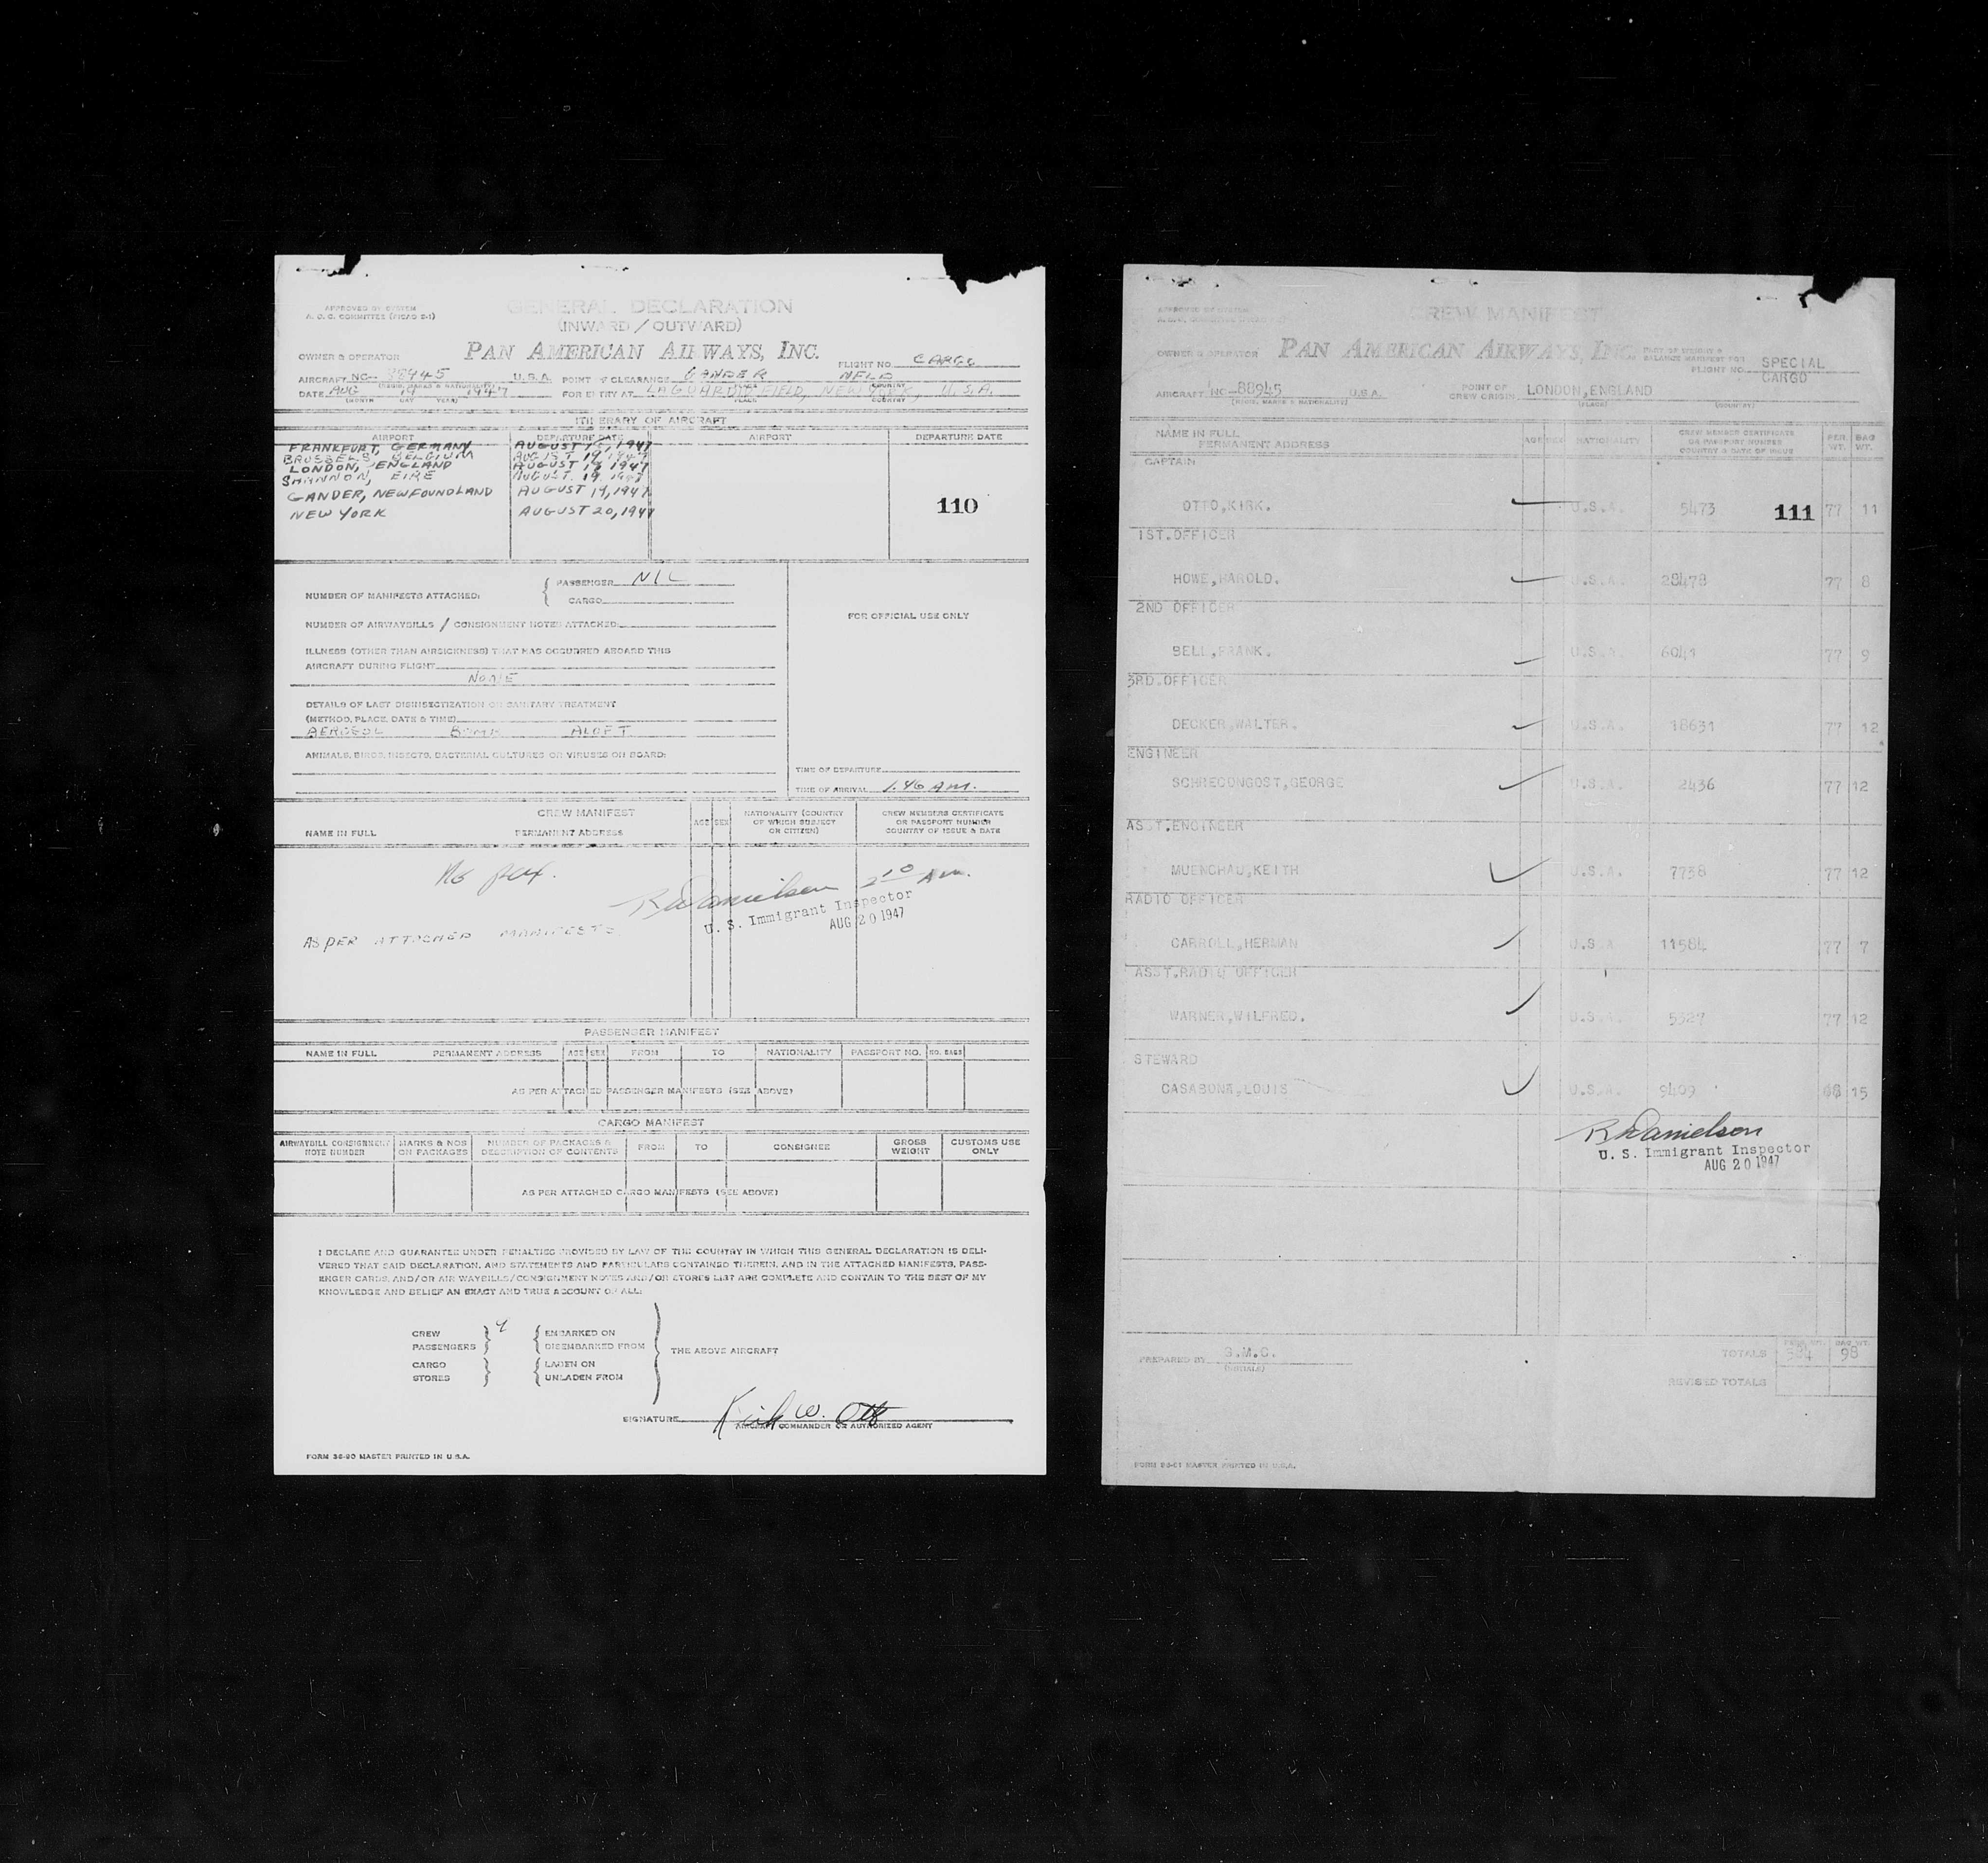 APPROVED BY SYSTEM
A. O. C. COMMITTEE (PICAO E-1)
GENERAL DECLARATION
(INWARD / OUTWARD)
OWNER & OPERATOR PAN AMERICAN AIRWAYS, INC. FLIGHT NO. CARGO
AIRCRAFT NC- 88945 U.S.A. POINT OF CLEARANCE GANDER NFLD
(REGIS. MARKS & NATIONALITY) PLACE COUNTRY
DATE AUG 19 1947 FOR ENTRY AT LAGUARDIA FIELD, NEW YORK, U.S.A.
(MONTH DAY YEAR) PLACE COUNTRY
ITINERARY OF AIRCRAFT
AIRPORT DEPARTURE DATE AIRPORT DEPARTURE DATE
FRANKFURT, GERMANY AUGUST 1947
BRUSSELS BELGIUM AUGUST 19 1947
LONDON, ENGLAND AUGUST 1947
SHANNON, EIRE AUGUST 19, 1947
GANDER, NEWFOUNDLAND AUGUST 19, 1947
NEW YORK AUGUST 20, 1947
110
NUMBER OF MANIFESTS ATTACHED: PASSENGER NIL
CARGO
FOR OFFICIAL USE ONLY
NUMBER OF AIRWAYBILLS / CONSIGNMENT NOTES ATTACHED
ILLNESS (OTHER THAN AIRSICKNESS) THAT HAS OCCURRED ABOARD THIS
AIRCRAFT DURING FLIGHT
NONE
DETAILS OF LAST DISINSECTIZATION OR SANITARY TREATMENT
(METHOD, PLACE, DATE & TIME)
AEROSOL BOMB ALOFT
ANIMALS, BIRDS, INSECTS, BACTERIAL CULTURES OR VIRUSES ON BOARD:
TIME OF DEPARTURE
TIME OF ARRIVAL 1.46 A.M.
CREW MANIFEST
NAME IN FULL PERMANENT ADDRESS AGE SEX NATIONALITY (COUNTRY OF WHICH SUBJECT OR CITIZEN) CREW MEMBERS CERTIFICATE OR PASSPORT NUMBER COUNTRY OF ISSUE & DATE
No pax.
R W Danielson 2 10 A.m.
U. S. Immigrant Inspector
AUG 20 1947
AS PER ATTACHED MANIFESTS
PASSENGER MANIFEST
NAME IN FULL PERMANENT ADDRESS AGE SEX FROM TO NATIONALITY PASSPORT NO. NO. BAGS
AS PER ATTACHED PASSENGER MANIFESTS (SEE ABOVE)
CARGO MANIFEST
AIRWAYBILL CONSIGNMENT NOTE NUMBER MARKS & NOS ON PACKAGES NUMBER OF PACKAGES & DESCRIPTION OF CONTENTS FROM TO CONSIGNEE GROSS WEIGHT CUSTOMS USE ONLY
AS PER ATTACHED CARGO MANIFESTS (SEE ABOVE)
I DECLARE AND GUARANTEE UNDER PENALTIES PROVIDED BY LAW OF THE COUNTRY IN WHICH THIS GENERAL DECLARATION IS DELI-
VERED THAT SAID DECLARATION, AND STATEMENTS AND PARTICULARS CONTAINED THEREIN, AND IN THE ATTACHED MANIFESTS, PASS-
ENGER CARDS, AND/OR AIR WAYBILLS/CONSIGNMENT NOTES AND/OR STORES LIST ARE COMPLETE AND CONTAIN TO THE BEST OF MY
KNOWLEDGE AND BELIEF AN EXACT AND TRUE ACCOUNT OF ALL:
CREW EMBARKED ON
PASSENGERS DISEMBARKED FROM
THE ABOVE AIRCRAFT
CARGO LADEN ON
STORES UNLADEN FROM
SIGNATURE Kirk W. Otto
AIRCRAFT COMMANDER OR AUTHORIZED AGENT
FORM 36-90 MASTER PRINTED IN U.S.A.
APPROVED BY SYSTEM
CREW MANIFEST
OWNER & OPERATOR PAN AMERICAN AIRWAYS, INC. PART OF WEIGHT & BALANCE MANIFEST FOR FLIGHT NO. SPECIAL CARGO
AIRCRAFT NC 88945 U.S.A. POINT OF CREW ORIGIN LONDON, ENGLAND
(REGIS. MARKS & NATIONALITY) (PLACE) (COUNTRY)
NAME IN FULL PERMANENT ADDRESS AGE SEX NATIONALITY CREW MEMBER CERTIFICATE OR PASSPORT NUMBER COUNTRY & DATE OF ISSUE PER. WT. BAG WT.
CAPTAIN
OTTO, KIRK. U.S.A. 5473 111 77 11
1ST. OFFICER
HOWE, HAROLD. U.S.A. 28478 77 8
2ND OFFICER
BELL, FRANK. U.S.A. 77 9
3RD. OFFICER
DECKER, WALTER. U.S.A. 18631 77 12
ENGINEER
SCHRECONGOST, GEORGE U.S.A. 2436 77 12
ASST. ENGINEER
MUENCHAU, KEITH U.S.A. 7738 77 12
RADIO OFFICER
CARROLL, HERMAN U.S.A 11584 77 7
ASST. RADIO OFFICER
WARNER, WILFRED. U.S.A. 5327 77 12
STEWARD
CASABONA, LOUIS U.S.A. 9409 68 15
R W Danielson
U. S. Immigrant Inspector
AUG 20 1947
PREPARED BY G.M.C.
(INITIALS)
TOTALS PERS. WT. 684 BAG WT. 98
REVISED TOTALS
FORM 36-91 MASTER PRINTED IN U.S.A.